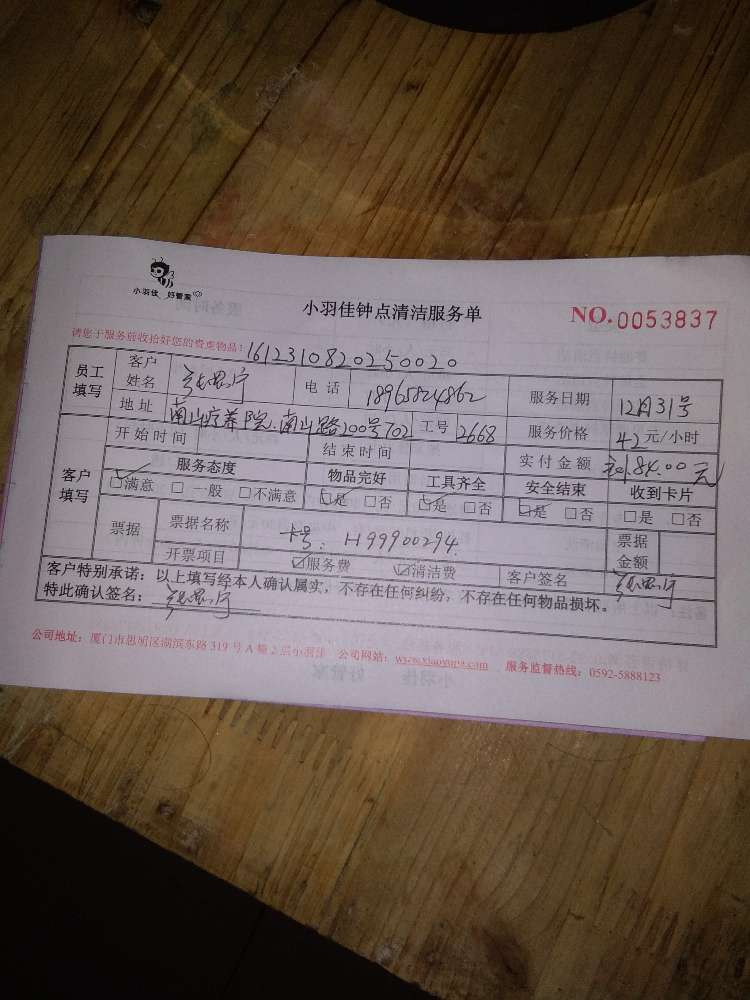 小羽佳 好管家
小羽佳钟点清洁服务单
NO.0053837
请您于服务前收拾好您的贵重物品!
1612310820250020
员工填写
客户姓名
电话 18965824862
服务日期 12月31号
地址 南山疗养院.南山路200号702
工号 2668
服务价格 42元/小时
客户填写
开始时间
结束时间
实付金额 184.00元
服务态度
物品完好
工具齐全
安全结束
收到卡片
☑满意 □一般 □不满意
☑是 □否
☑是 □否
☑是 □否
□是 □否
票据
票据名称 卡号:H99900294.
票据金额
开票项目 ☑服务费 ☑清洁费
客户签名
客户特别承诺:以上填写经本人确认属实,不存在任何纠纷,不存在任何物品损坏。
特此确认签名:
公司地址:厦门市思明区湖滨东路319号A幢2层小羽佳 公司网站:www.xiaoyujia.com 服务监督热线:0592-5888123